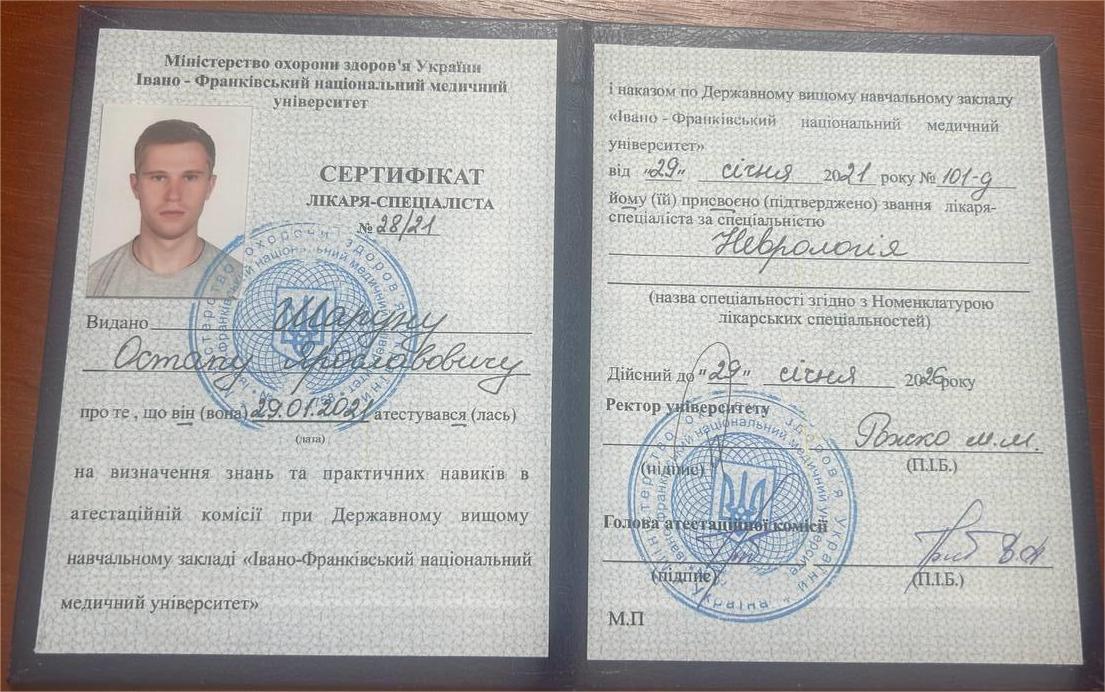 Міністерство охорони здоров'я України
Івано - Франківський національний медичний
університет
СЕРТИФІКАТ
ЛІКАРЯ-СПЕЦІАЛІСТА
№ 28/21
Видано Шаруну
Остапу Ярославовичу
про те , що він (вона) 29.01.2021 атестувався (лась)
(дата)
на визначення знань та практичних навиків в
атестаційній комісії при Державному вищому
навчальному закладі «Івано-Франківський національний
медичний університет»
і наказом по Державному вищому навчальному закладу
«Івано - Франківський національний медичний
університет»
від "29" січня 2021 року № 101-д
йому (їй) присвоєно (підтверджено) звання лікаря-
спеціаліста за спеціальністю
Неврологія
(назва спеціальності згідно з Номенклатурою
лікарських спеціальностей)
Дійсний до "29" січня 2026 року
Ректор університету
Рожко М.М.
(підпис) (П.І.Б.)
Голова атестаційної комісії
(підпис) (П.І.Б.)
М.П